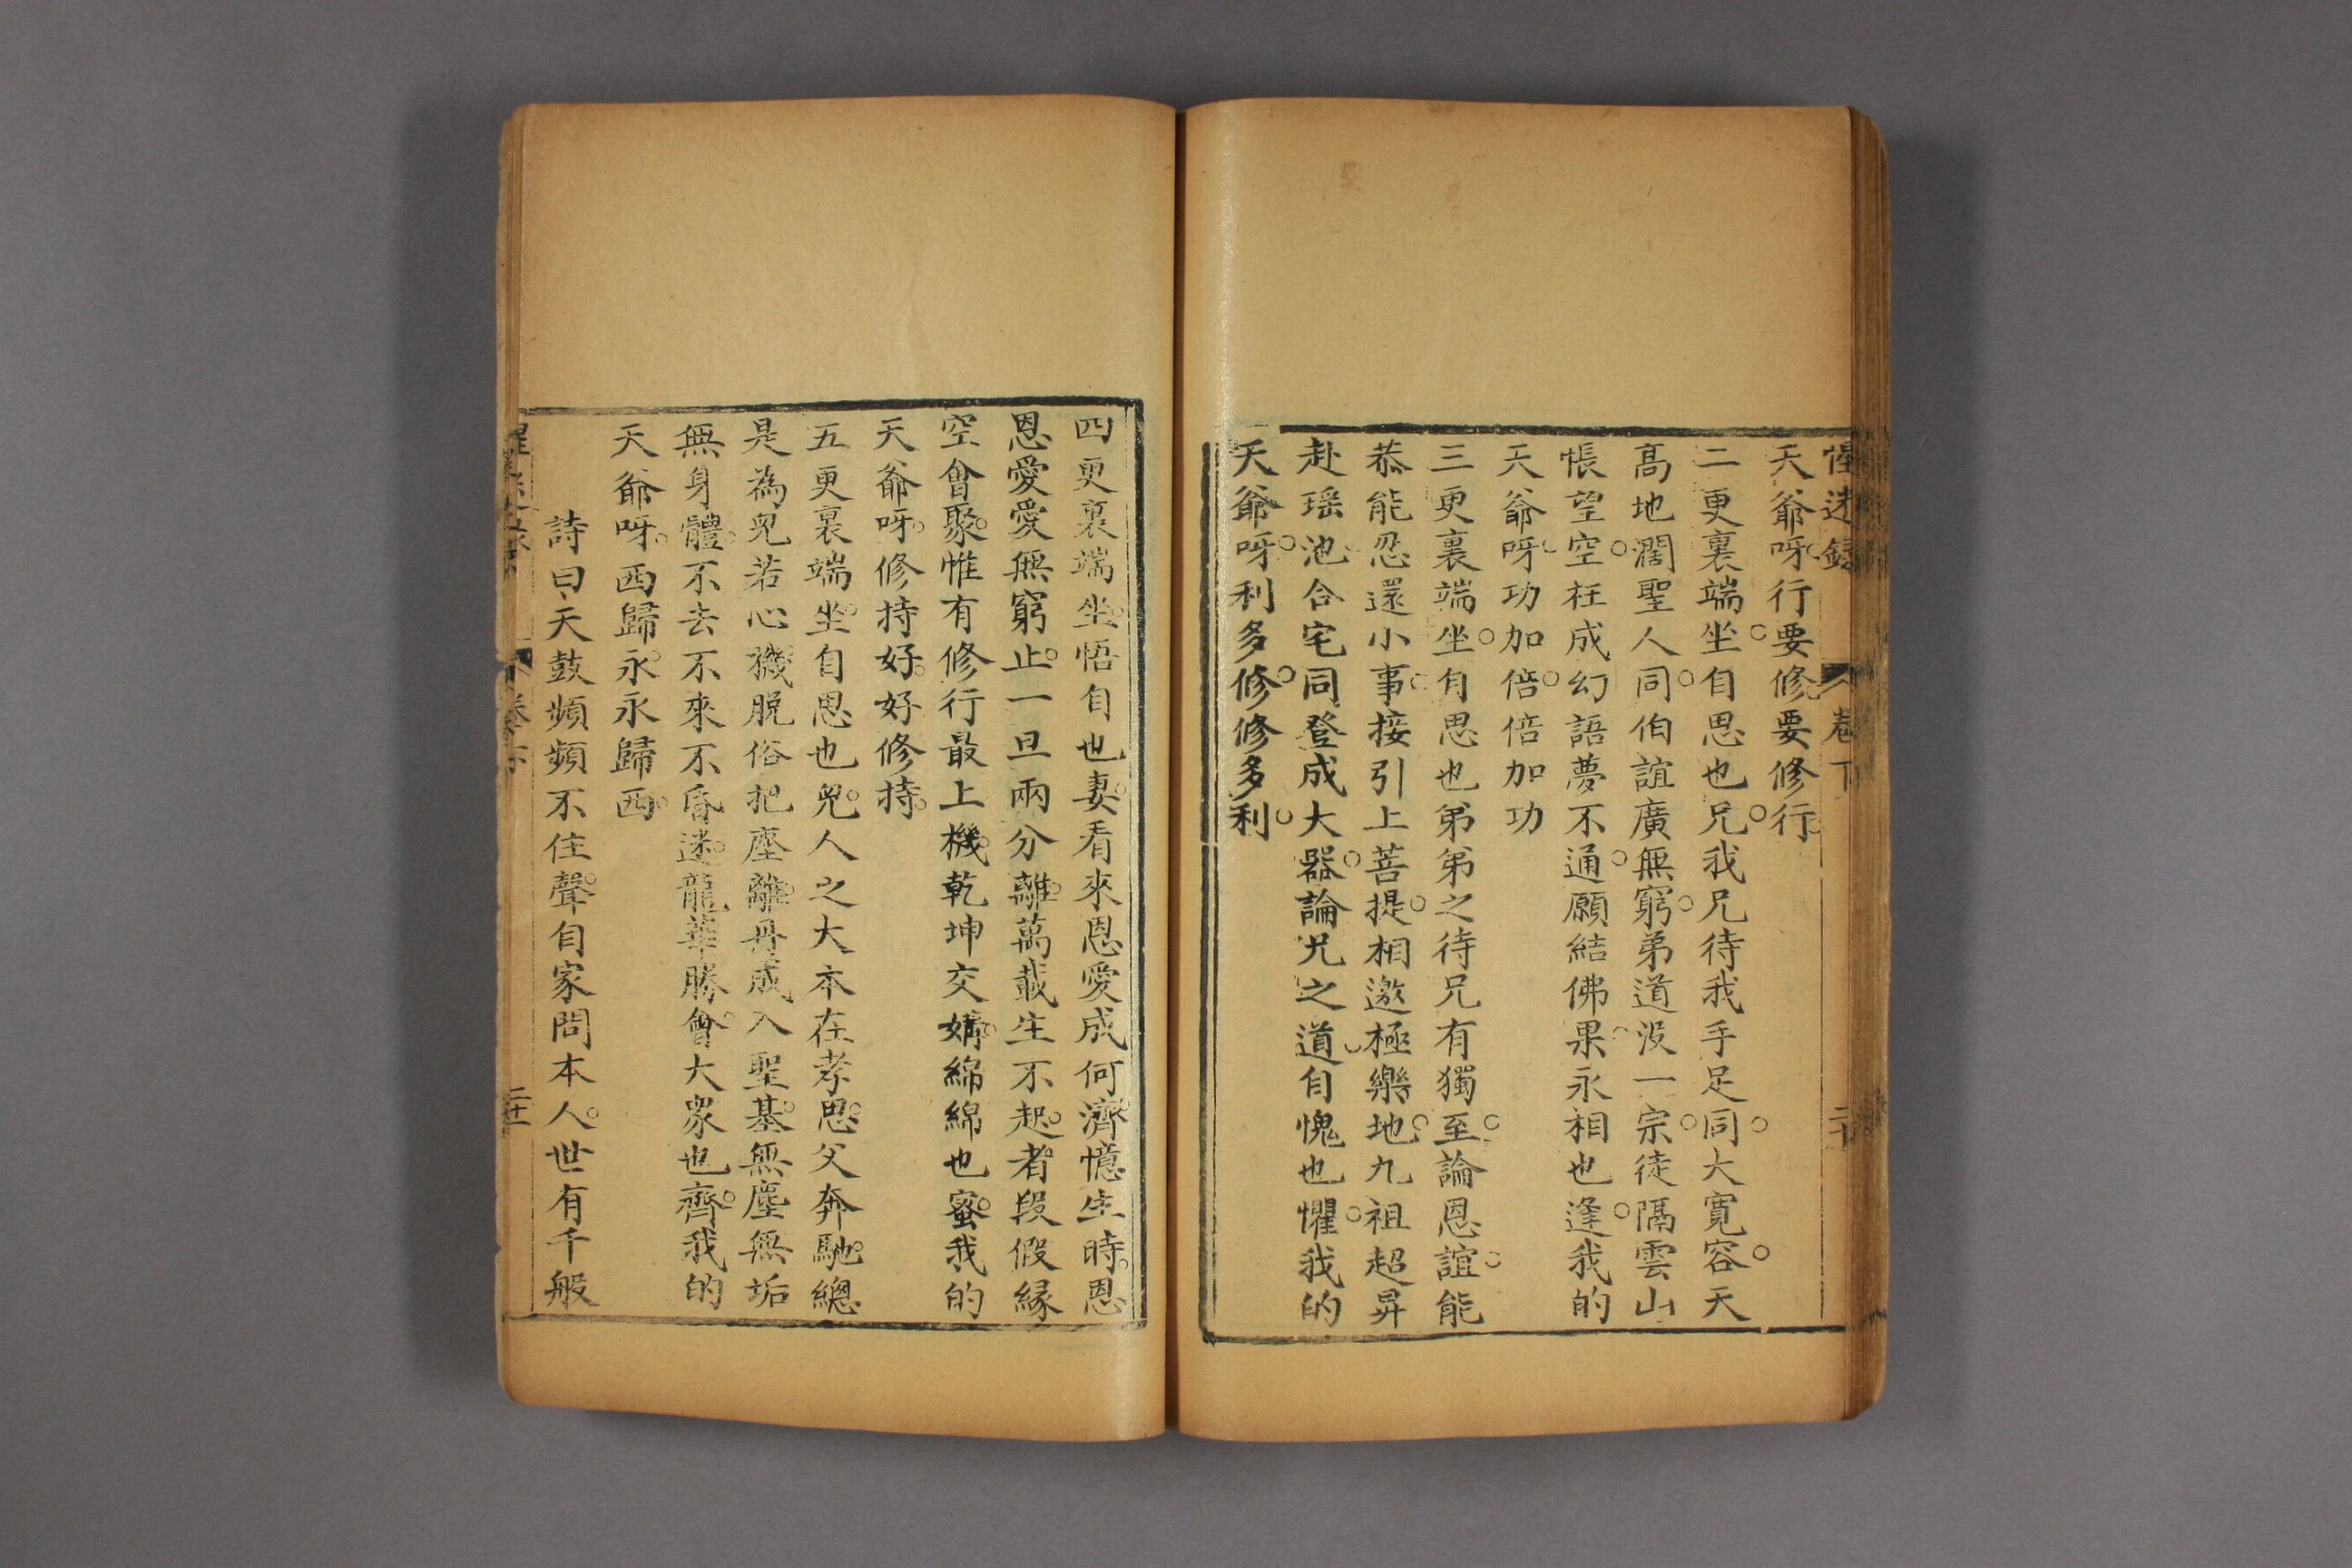 惺迷錄 卷下
天爺呀。行要修。要修行。
二更裏端坐。自思也兄。我兄待我手足同。大寬容。天
高地濶聖人同。伯誼廣無窮。弟道沒一宗。徒隔雲山
悵望空。枉成幻語夢不通。願結佛果。永相也逢。我的
天爺呀。功加倍。倍加功
三更裏端坐。自思也弟弟之待兄有獨至。論恩誼。能
恭能忍還小事。接引上菩提。相邀極樂地。九祖超昇
赴瑶池。合宅同登成大器。論兄之道。自愧也懼。我的
天爺呀。利多修。修多利。
四更裏端坐。悟自也妻。看來恩愛成何濟。憶生時。恩
恩愛愛無窮止。一旦兩分離。萬載生不起。者段假緣
空會聚。惟有修行最上機。乾坤交媾。綿綿也蜜。我的
天爺呀。修持好。好修持。
五更裏端坐。自思也兒。人之大本在孝思。父奔馳。總
是為兒若心機。脫俗把塵離。丹成入聖基。無塵無垢
無身體。不去不來不昏迷。龍華勝會。大眾也齊。我的
天爺呀。西歸永。永歸西。
詩曰天鼓頻頻不住聲。自家問本人。世有千般
卷下